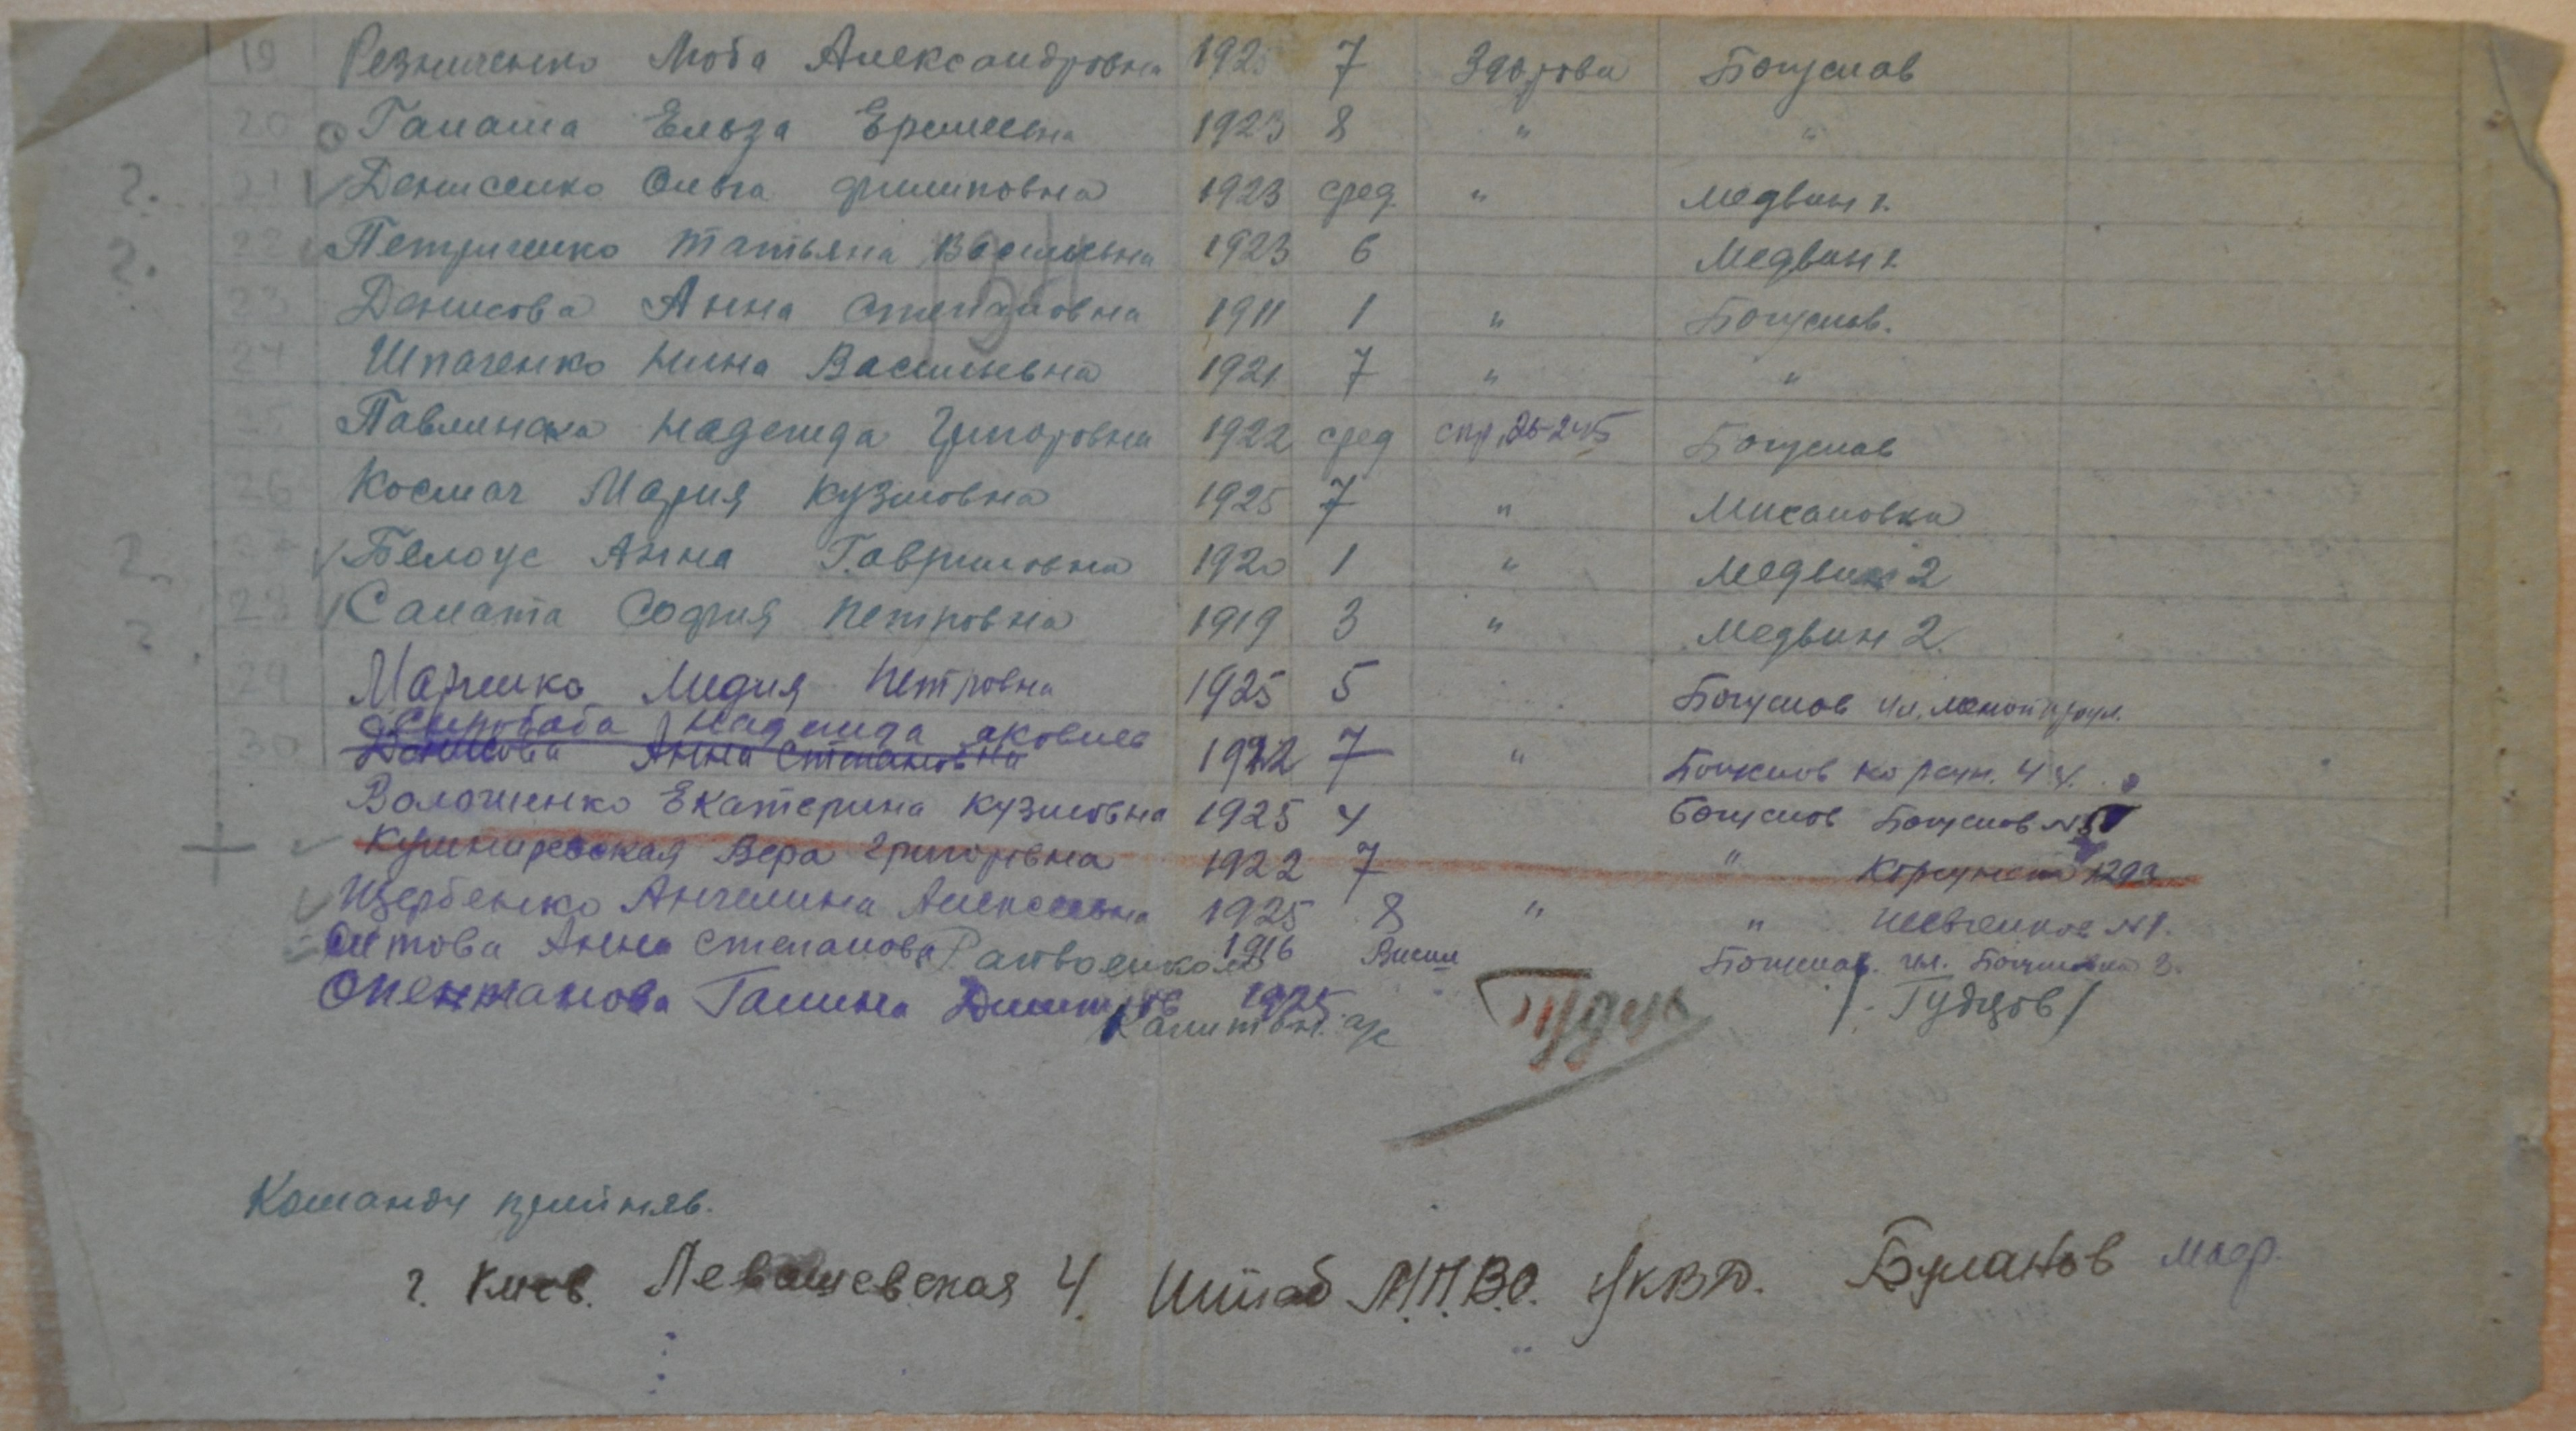 19 Резниченко Люба Александровна 192 7 Здорова Богуслав
20 Галата Ельза Еремеевна 1923 8 " "
2. 21 Денисенко Ольга Филиповна 1923 сред. " Медвин 2.
2. 22 Петриченко Татьяна Васильевна 1923 6 Медвин 2.
23 Денисова Анна Степановна 1911 1 " Богуслав.
24 Шпаченко Нина Васильевна 1921 7 " "
25 Надежда Григоровна 1922 сред спр. Богуслав
26 Космач Мария Кузмовна 1925 7 " Мисайловка
2. 27 Белоус Анна Гавриловна 1920 1 " Медвин 2
2. 28 Салата София Петровна 1919 3 " Медвин 2.
29 Марченко Лидия Петровна 1925 5 Богуслов ул.
Надежда Яковлев
30 Денисова Анна Степановна 1922 7 " Богуслов 44.
Волошенко Екатерина Кузмовна 1925 4 Богуслов Богуслов
Кушнировская Вера Григоровна 1922 7 " 1293
Щербенко Ангелина Алексеевна 1925 8 " " Шевченков №1.
Анна Степанова 1916 Висш Богуслав. ул. 3.
Галина Дмитров 1925
/ Гудзов /
Команду прийняв.
г. Киев. Левашевская 4. Штаб М.П.В.О. НКВД. Буланов